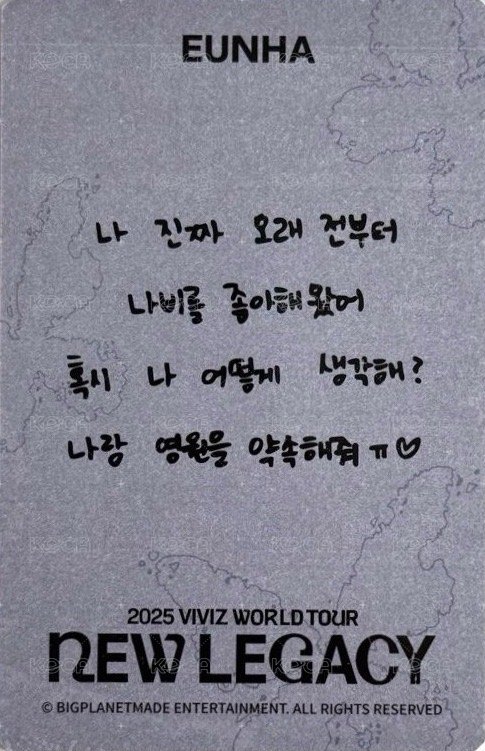 EUNHA
나 진짜 오래 전부터
나비를 좋아해왔어
혹시 나 어떻게 생각해?
나랑 영원을 약속해줘 ㅠ♡
2025 VIVIZ WORLD TOUR
NEW LEGACY
© BIGPLANETMADE ENTERTAINMENT. ALL RIGHTS RESERVED